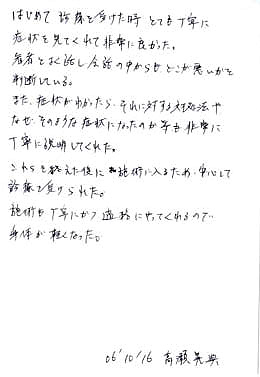 はじめて診療を受けた時とても丁寧に
症状を見てくれて非常に良かった。
患者とよく話し会話の中からもどこが悪いかを
判断している。
また、症状がわかったら、それに対する対処法や
なぜそのような症状になったのか等も非常に
丁寧に説明してくれた。
これらを終えた後に施術に入るため、安心して
診療を受けられた。
施術も丁寧にかつ適格にやってくれるので
身体が軽くなった。
06'10/16 高瀬晃典